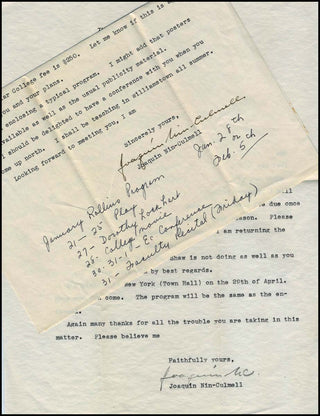 ar College fee is $250. Let me know if this is
you and your plans.
enclosing a typical program. I might add that posters
available as well as the usual publicity material.
I should be delighted to have a conference with you when you
ome up north. I shall be teaching in Williamstown all summer.
Looking forward to meeting you, I am
Sincerely yours,
Joaquin Nin-Culmell
Joaquin Nin-Culmell
Jan. 28th
or
Feb. 5
January Rollins Program
21-25 Play
27- Dorothy Lockhart
28- College Movie
30-31-1- Ec Conference
31- Faculty Recital (Friday)
ill
be due once
ason. Please
I am returning the
Shaw is not doing as well as you
by best regards.
New York (Town Hall) on the 29th of April.
come. The program will be the same as the en-
Again many thanks for all the trouble you are taking in this
matter. Please believe me
Faithfully yours,
Joaquin N.C.
Joaquin Nin-Culmell